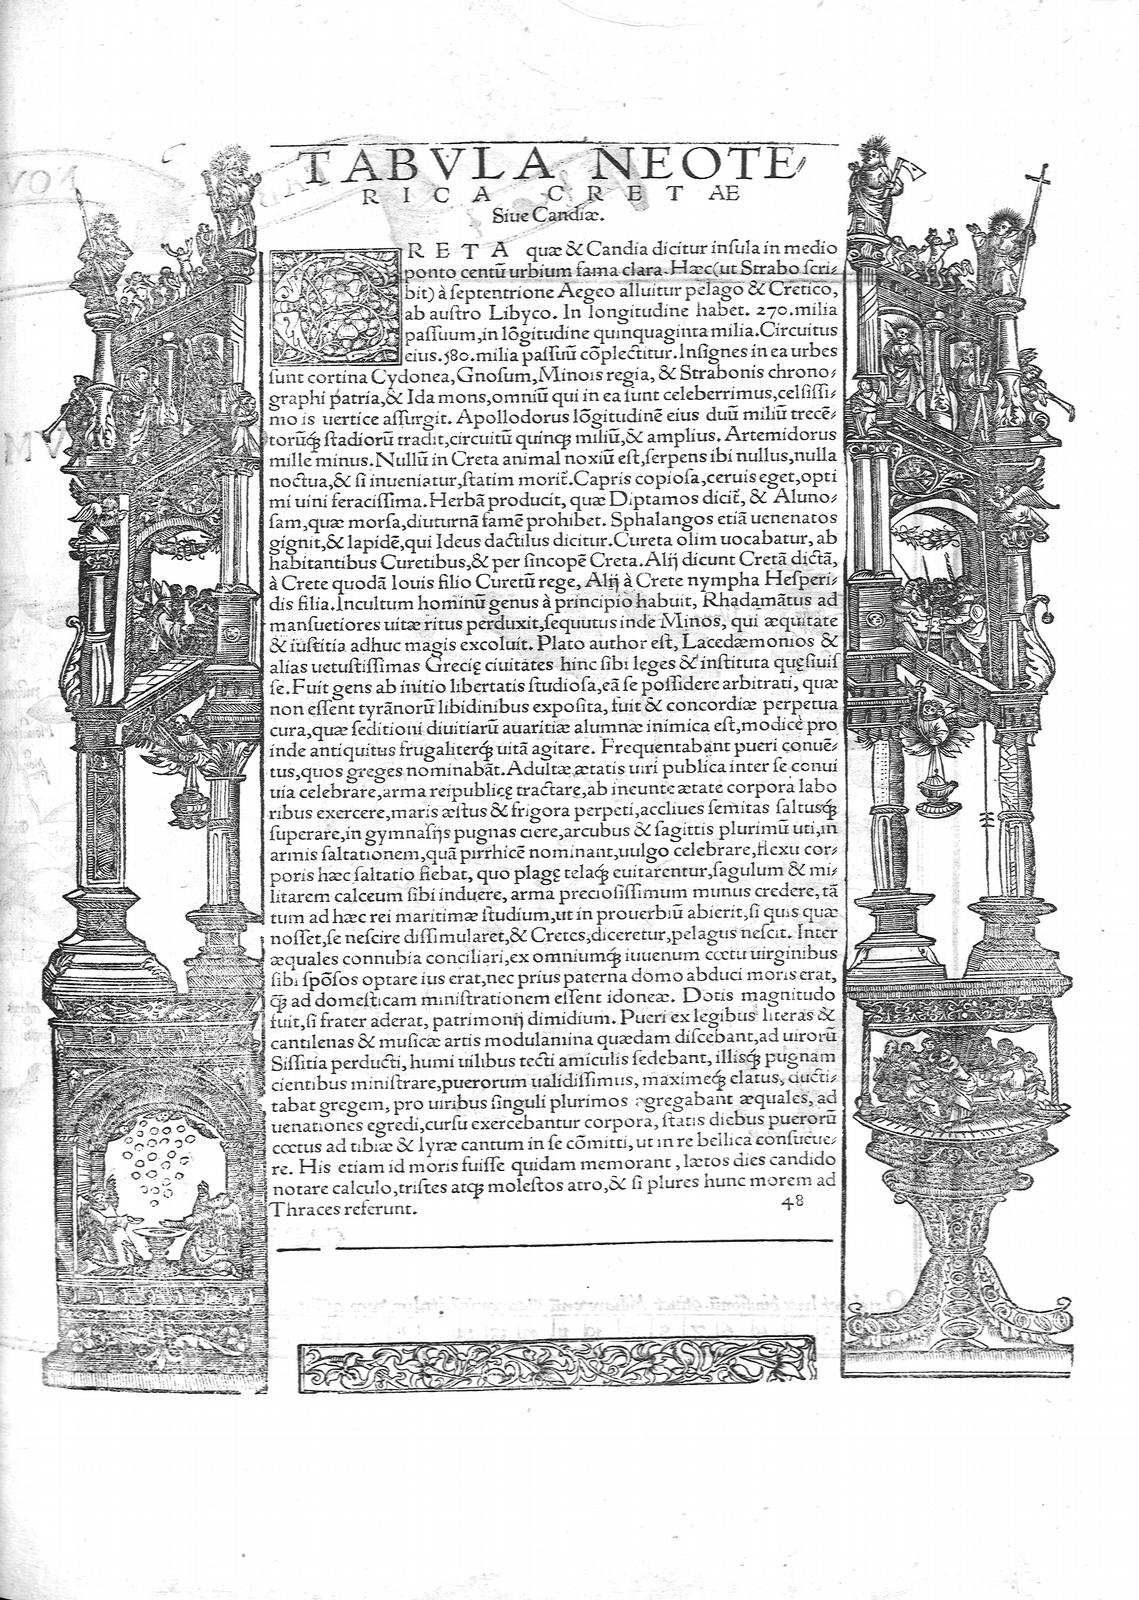 TABVLA NEOTE⸗
RICA CRETAE
Siue Candiæ.
RETA quæ & Candia dicitur inſula in medio
ponto centũ urbium fama clara. Hæc(ut Strabo ſcri⸗
bit) à ſeptentrione Aegeo alluitur pelago & Cretico,
ab auſtro Libyco. In longitudine habet. 270. milia
paſſuum,in lõgitudine quinquaginta milia. Circuitus
eius. 580. milia paſſuũ cõplectitur. Inſignes in ea urbes
ſunt cortina Cydonea, Gnoſum, Minois regia, & Strabonis chrono⸗
graphi patria,& Ida mons,omniũ qui in ea ſunt celeberrimus,celſiſſi⸗
mo is uertice aſſurgit. Apollodorus lõgitudinẽ eius duũ miliũ trecẽ⸗
torũq̃ ſtadiorũ tradit,circuitũ quinq̃ miliũ,& amplius. Artemidorus
mille minus. Nullũ in Creta animal noxiũ eſt,ſerpens ibi nullus,nulla
noctua,& ſi inueniatur,ſtatim morit̃. Capris copioſa,ceruis eget,opti
mi uini feraciſſima. Herbã producit, quæ Diptamos dicit̃, & Aluno⸗
ſam,quæ morſa,diuturnã famẽ prohibet. Sphalangos etiã uenenatos
gignit,& lapidẽ,qui Ideus dactilus dicitur. Cureta olim uocabatur, ab
habitantibus Curetibus,& per ſincopẽ Creta. Alij dicunt Cretã dictã,
à Crete quodã Iouis filio Curetũ rege, Alij à Crete nympha Heſperi⸗
dis filia. Incultum hominũ genus à principio habuit, Rhadamãtus ad
manſuetiores uitæ ritus perduxit,ſequutus inde Minos, qui æquitate
& iuſtitia adhuc magis excoluit. Plato author eſt, Lacedæmonios &
alias uetuſtiſſimas Grecię ciuitates hinc ſibi leges & inſtituta quęſiuiſ
ſe. Fuit gens ab initio libertatis ſtudioſa,eã ſe poſſidere arbitrati, quæ
non eſſent tyrãnorũ libidinibus expoſita, fuit & concordiæ perpetua
cura,quæ ſeditioni diuitiarũ auaritiæ alumnæ inimica eſt,modicè pro
inde antiquitus frugaliterq̃ uitã agitare. Frequentabant pueri conuẽ⸗
tus,quos greges nominabãt. Adultæ ætatis uiri publica inter ſe conui
uia celebrare,arma reipublicę tractare,ab ineunte ætate corpora labo
ribus exercere,maris æſtus & frigora perpeti,accliues ſemitas ſaltusq̃
ſuperare,in gymnaſijs pugnas ciere,arcubus & ſagittis plurimũ uti,in
armis ſaltationem,quã pirrhicẽ nominant,uulgo celebrare,flexu cor⸗
poris hæc ſaltatio fiebat, quo plagę telaq̃ euitarentur,ſagulum & mi⸗
litarem calceum ſibi induere, arma precioſiſſimum munus credere, tã
tum ad hæc rei maritimæ ſtudium,ut in prouerbiũ abierit,ſi quis quæ
noſſet,ſe neſcire diſſimularet,& Cretes,diceretur,pelagus neſcit. Inter
æquales connubia conciliari,ex omniumq̃ iuuenum cœtu uirginibus
ſibi ſpõſos optare ius erat,nec prius paterna domo abduci moris erat,
q̃ ad domeſticam miniſtrationem eſſent idoneæ. Dotis magnitudo
fuit,ſi frater aderat, patrimonij dimidium. Pueri ex legibus literas &
cantilenas & muſicæ artis modulamina quædam diſcebant,ad uirorũ
Siſſitia perducti, humi uilibus tecti amiculis ſedebant, illisq̃ pugnam
cientibus miniſtrare,puerorum ualidiſſimus, maximeq̃ elatus, ducti⸗
tabat gregem, pro uiribus ſinguli plurimos agregabant æquales, ad
uenationes egredi,curſu exercebantur corpora, ſtatis diebus puerorũ
cœtus ad tibiæ & lyræ cantum in ſe cõmitti, ut in re bellica conſueue⸗
re. His etiam id moris fuiſſe quidam memorant, lætos dies candido
notare calculo,triſtes atq̃ moleſtos atro,& ſi plures hunc morem ad
Thraces referunt.
48